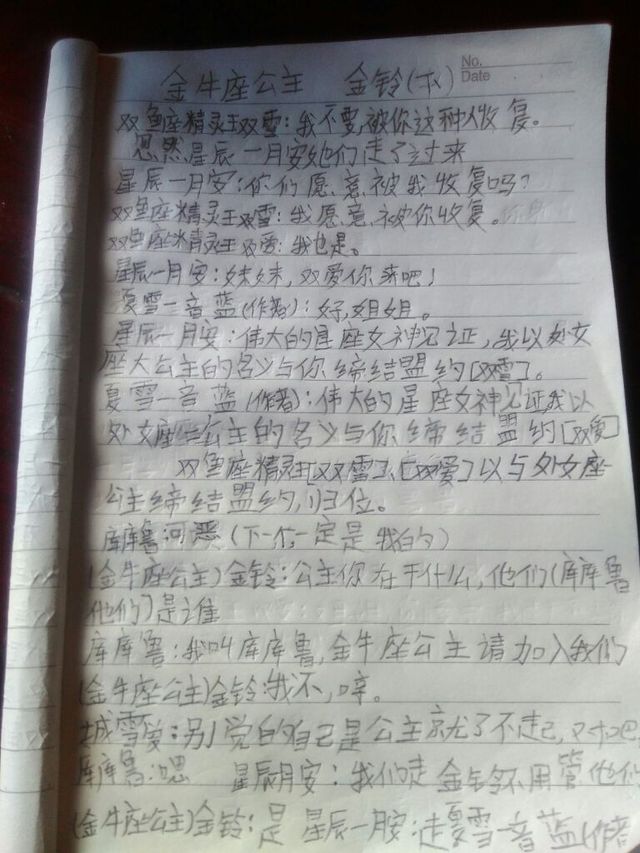 No.
Date
金牛座公主 金铃(下)
双鱼座精灵王双雪:我不要被你这种人收复。
忽然星辰一月安她们走了过来
星辰一月安:你们愿意被我收复吗?
双鱼座精灵王双雪:我愿意被你收复。
双鱼座精灵王双爱:我也是。
星辰一月安:妹妹,双爱你来吧!
夏雪一音蓝(作者):好,姐姐。
星辰一月安:伟大的星座女神见证,我以处女
座大公主的名义与你缔结盟约[双雪]。
夏雪一音蓝(作者):伟大的星座女神见证我以
处女座二公主的名义与你缔结盟约[双爱]
双鱼座精灵王[双雪]、[双爱]以与处女座
公主缔结盟约,归位。
库库鲁:可恶(下一个一定是我的)
(金牛座公主)金铃:公主你在干什么,他们(库库鲁
他们)是谁
库库鲁:我叫库库鲁,金牛座公主请加入我们
(金牛座公主)金铃:我不,哼。
城雪爱:别觉的自己是公主就了不起,
库库鲁:嗯 星辰月安:我们走金铃不用管他们
(金牛座公主)金铃:是 星辰一月安:走夏雪一音蓝(作者